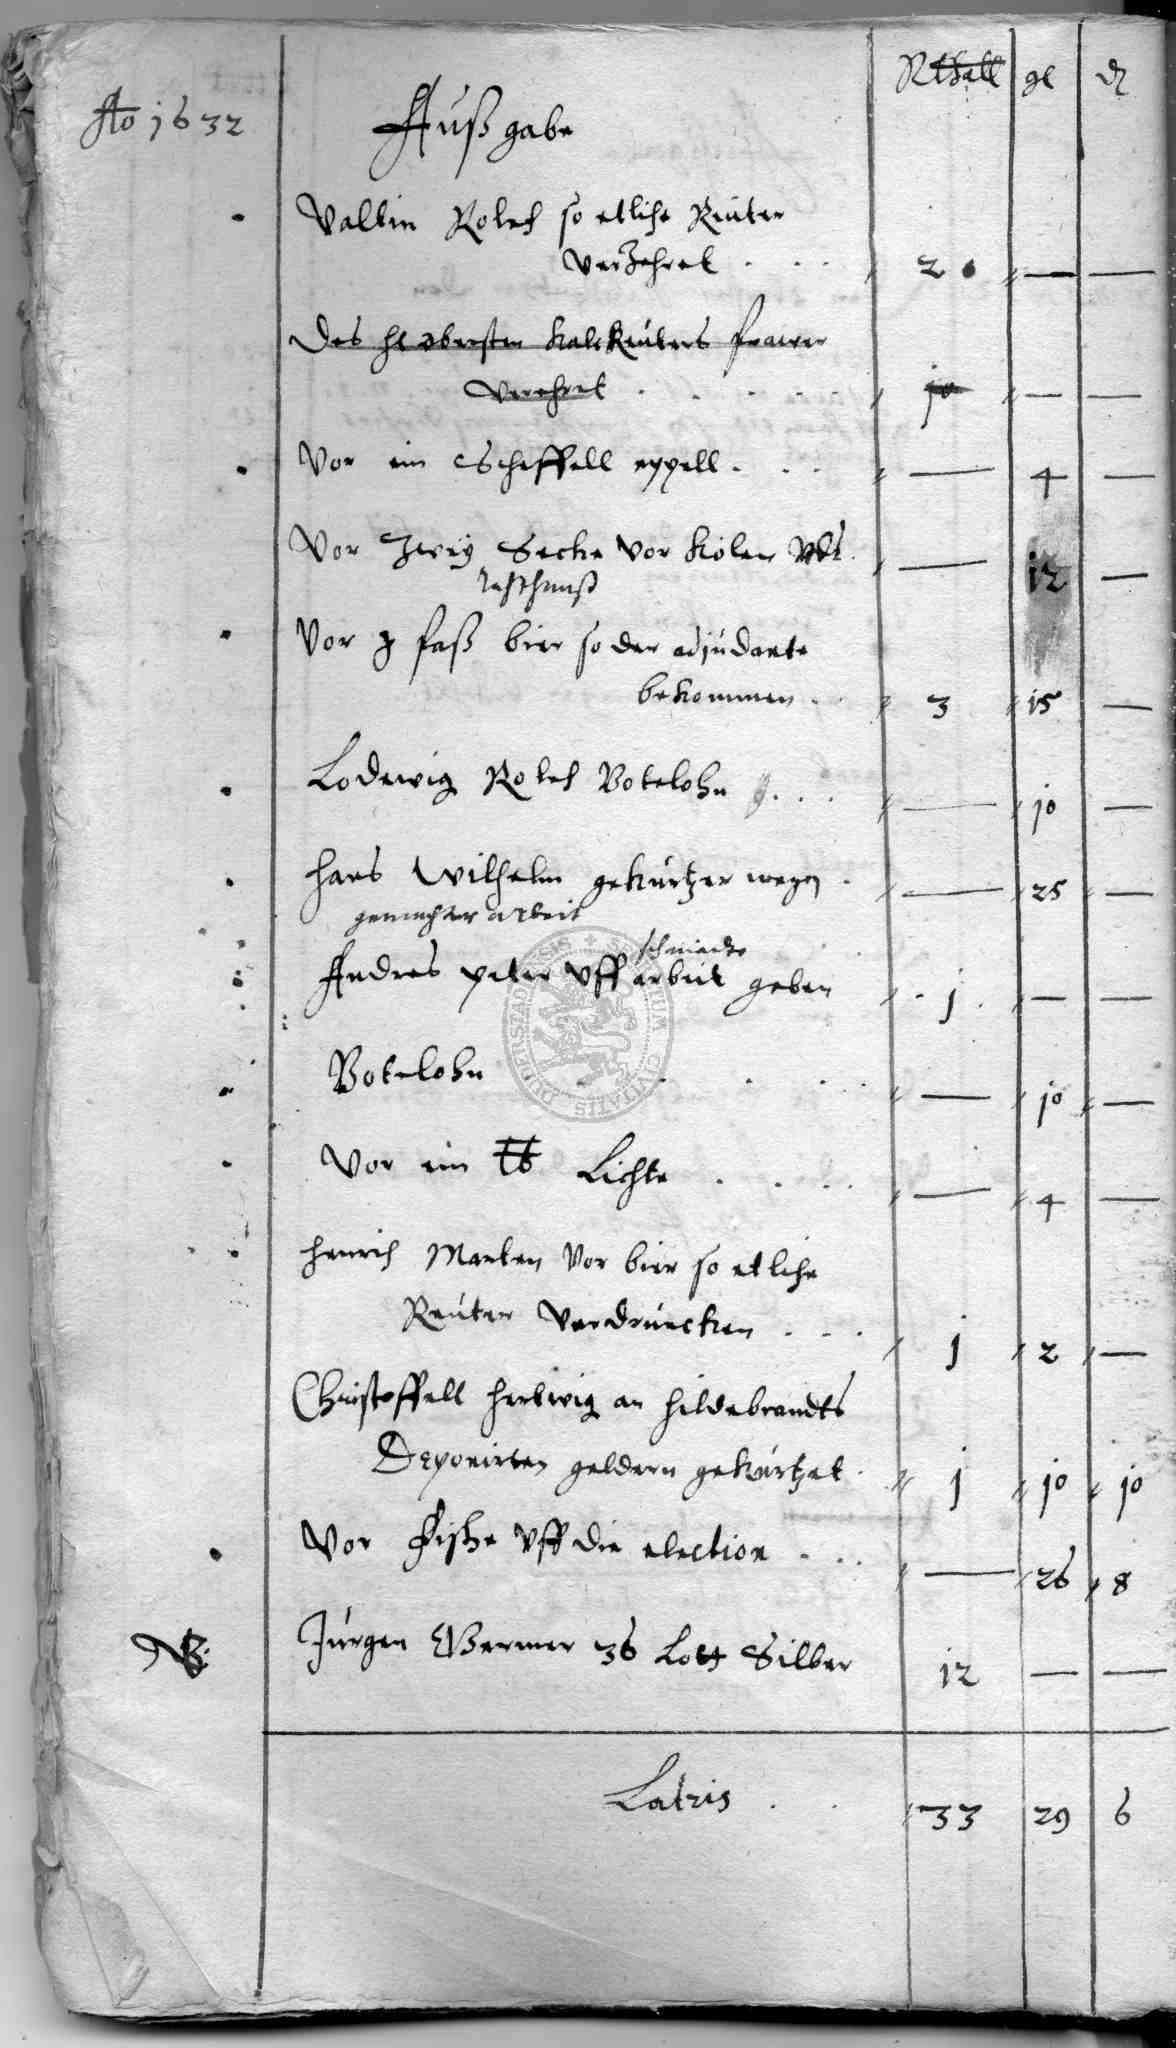 Rthall gl d
Ao 1632 Außgabe
Valtin Rolef so etliche Reuter
verzehret . . . 20 — —
Des hl obersten Kalckreuters frawen
verehret . . . . . 10 — —
Vor ein Scheffell eppell . . . — 4 —
Vor Zweÿ Secke vor Kolen — 12 —
Vor faß bier so der adjudante
bekommen . . 3 15 —
Lodewig Rolef Botelohn . . . — 10 —
Hans Wilhelm gekürtzer wegen . — 25 —
gemachter arbeit
schmiede
Andres Peter vff arbeit geben . 1 . — —
Botelohn . . . . — 10 —
Vor ein lb Lichte . . . . — 4 —
Henrich Marten Vor bier so etliche
Reuter Verdruncken . . . 1 2 —
Christoffell Hertwig an Hildebrandts
Deponirten geldern gekürtzet . 1 10 10
Vor Fische vff die election . . . — 26 8
NB: Jürgen Wermer 36 Lott Silber 12 — —
Latris . . 33 29 6
SIGILLUM CIVITATIS DUDERSTADENSIS